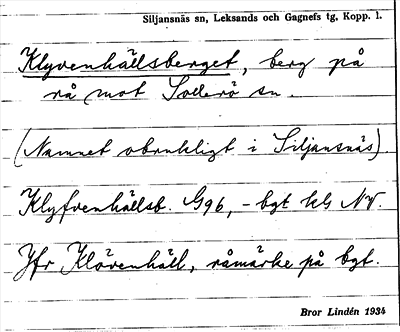 Siljansnäs sn, Leksands och Gagnefs tg, Kopp. l.
Klyvenhällsberget, berg på
rå mot Sollerö sn.
(Namnet obrukligt i Siljansnäs).
Klyfvenhällsb. G96, - bgt bl NV.
Jfr Klövenhäll, råmärke på bgt.
Bror Lindén 1934